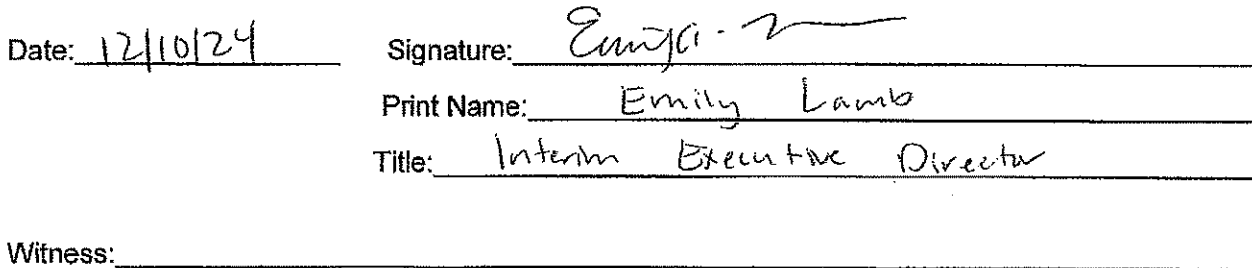 Date: 12/10/24 Signature:
Print Name: Emily Lamb
Title: Interim Executive Director
Witness: